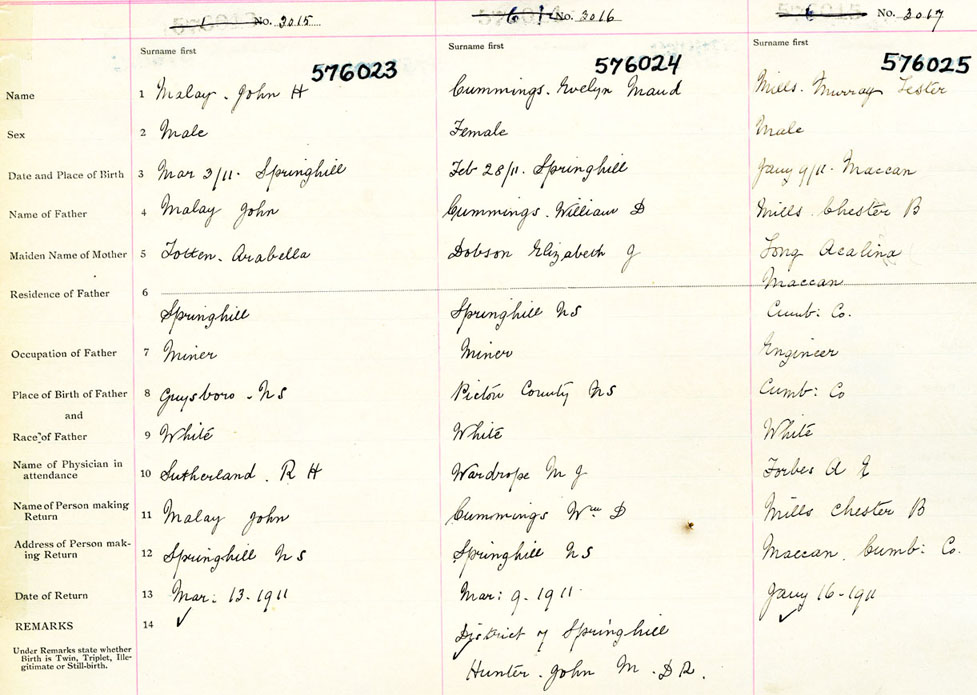 No. 3015
No. 3016
No. 3017
Surname first
Surname first
Surname first
576023
576024
576025
Name 1 Malay. John H
Cummings. Evelyn Maud
Mills. Murray Lester
Sex 2 Male
Female
Male
Date and Place of Birth 3 Mar 3/11. Springhill
Feb 28/11. Springhill
Jany 9/11. Maccan
Name of Father 4 Malay John
Cummings. William D
Mills. Chester B
Maiden Name of Mother 5 Totten. Arabella
Dobson Elizabeth J
Long Acalina
Residence of Father 6
Maccan
Springhill
Springhill NS
Cumb: Co.
Occupation of Father 7 Miner
Miner
Engineer
Place of Birth of Father 8 Guysboro - NS
Pictou County NS
Cumb: Co
and
Race of Father 9 White
White
White
Name of Physician in
attendance 10 Sutherland. R H
Wardrope M J
Forbes A E
Name of Person making
Return 11 Malay John
Cummings Wm D
Mills Chester B
Address of Person mak-
ing Return 12 Springhill NS
Springhill NS
Maccan. Cumb: Co.
Date of Return 13 Mar: 13-1911
Mar: 9-1911
Jany 16-1911
REMARKS 14 ✓
✓
District of Springhill
Under Remarks state whether
Birth is Twin, Triplet, Ille-
gitimate or Still-birth.
Hunter. John M. D R.